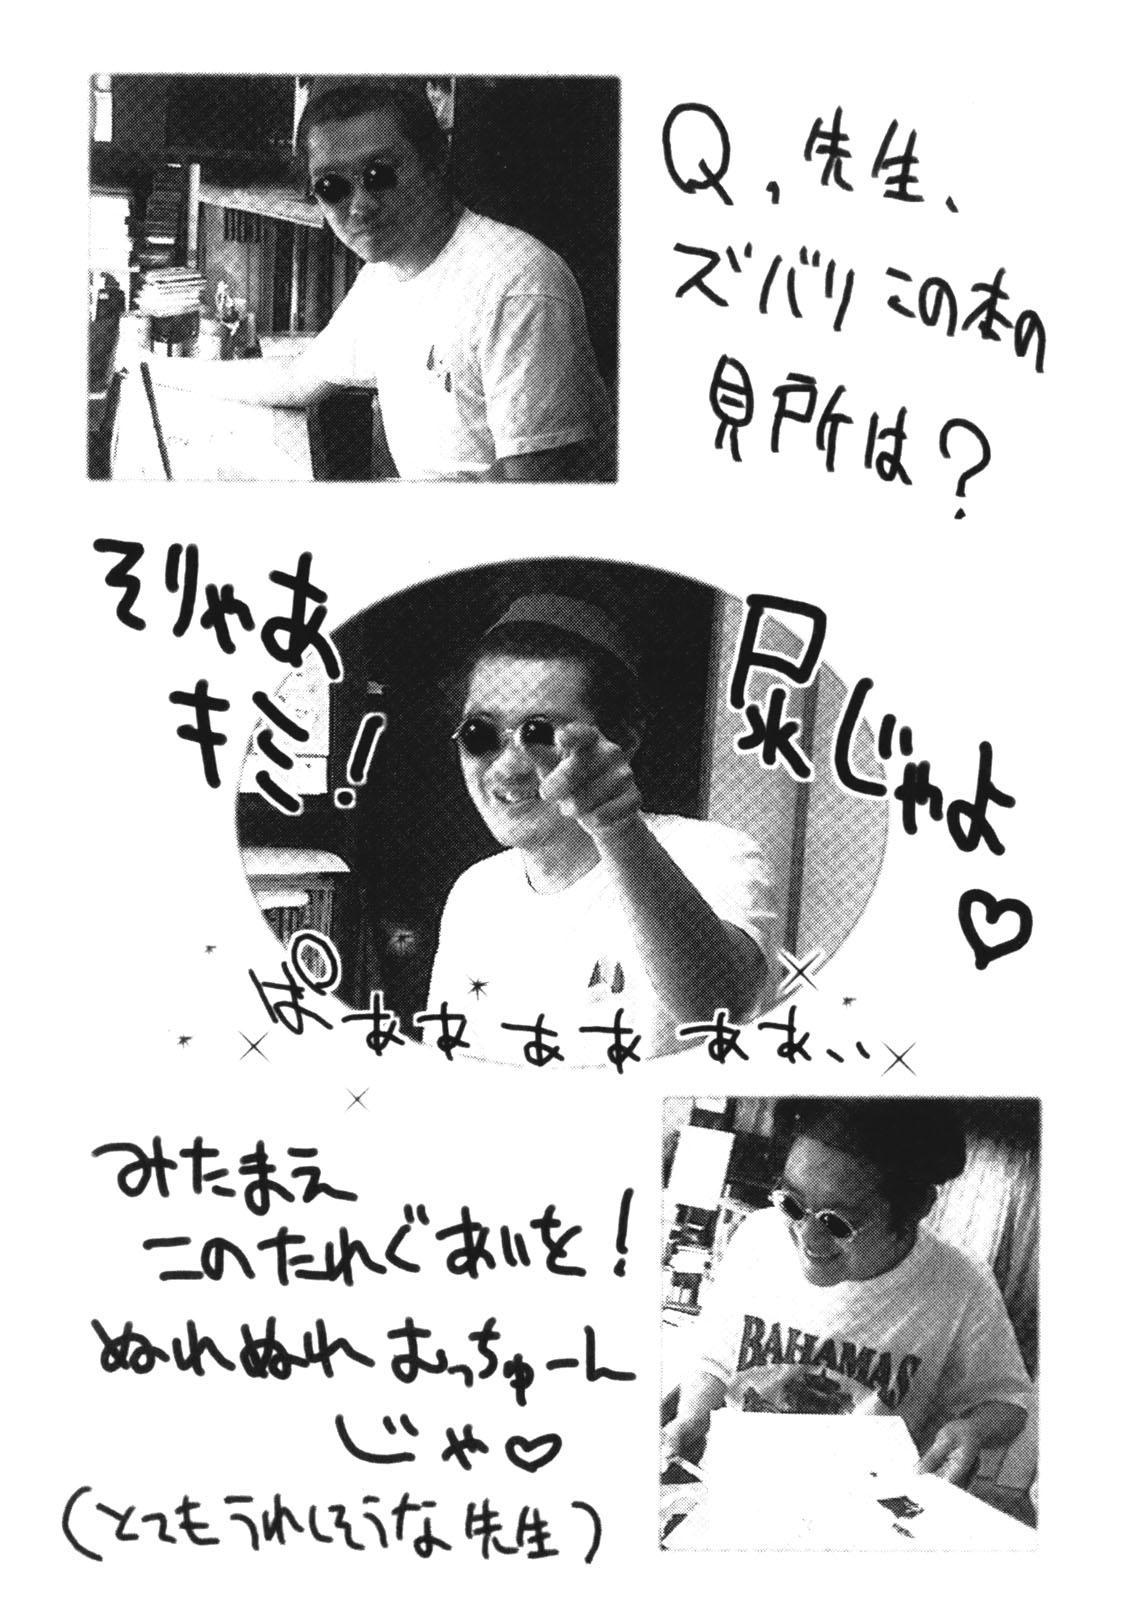 Q,先生、
ズバリこの本の
見所は?
そりゃあ
キミ!
尿じゃよ
♡
ぱぁぁぁぁぁぁ、、
みたまえ
このたれぐあいを!
ぬれぬれむっちゅーん
じゃ♡
(とてもうれしそうな先生)
BAHAMAS